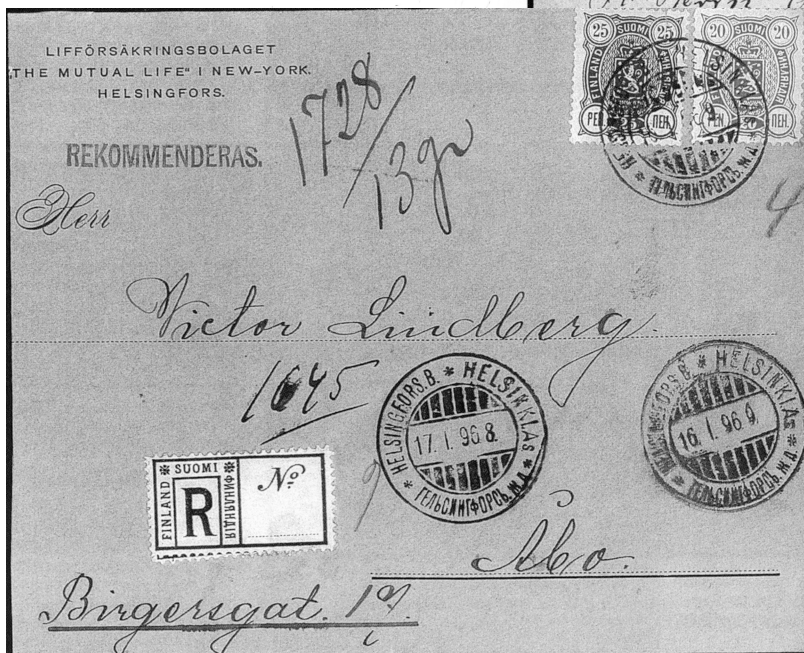 LIFFÖRSÄKRINGSBOLAGET
"THE MUTUAL LIFE" I NEW-YORK.
HELSINGFORS.
REKOMMENDERAS.
1728/13 gr
25 SUOMI 25
FINLAND
PEN. ПЕН.
20 SUOMI 20
PEN. ПЕН.
ГЕЛЬСИНГФОРСЪ. Ж.Д.
4
Herr
Victor Lindberg.
1645
HELSINGFORS.B. * HELSINKI.AS *
17. I. 96 8
ГЕЛЬСИНГФОРСЪ. Ж.Д.
HELSINKI.AS *
16. I. 96 9
ГЕЛЬСИНГФОРСЪ. Ж.Д.
FINLAND * SUOMI * ФИНЛЯНДІЯ
R
No
Åbo.
Birgersgat.